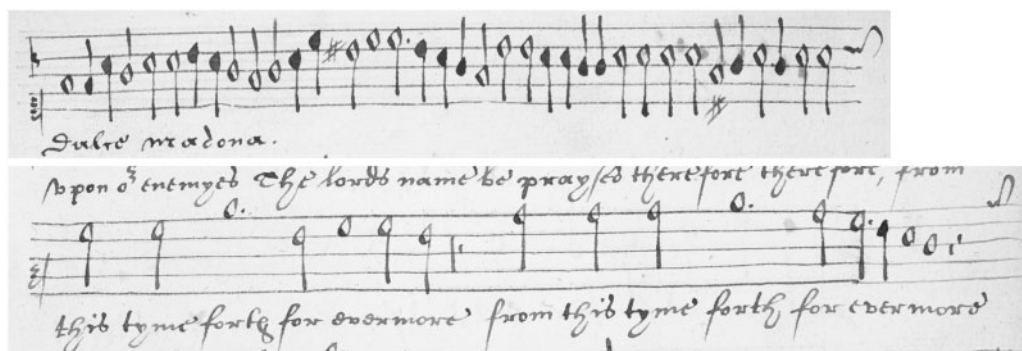 Dulce madona.
vpon or enemyes The lords name be praysed therefore therefore, from
this tyme forth for evermore from this tyme forth for evermore